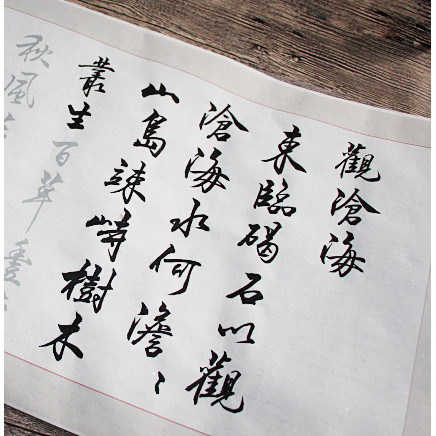 觀滄海
東臨碣石以觀
滄海水何澹〻
山島竦峙樹木
叢生百草豐
秋風